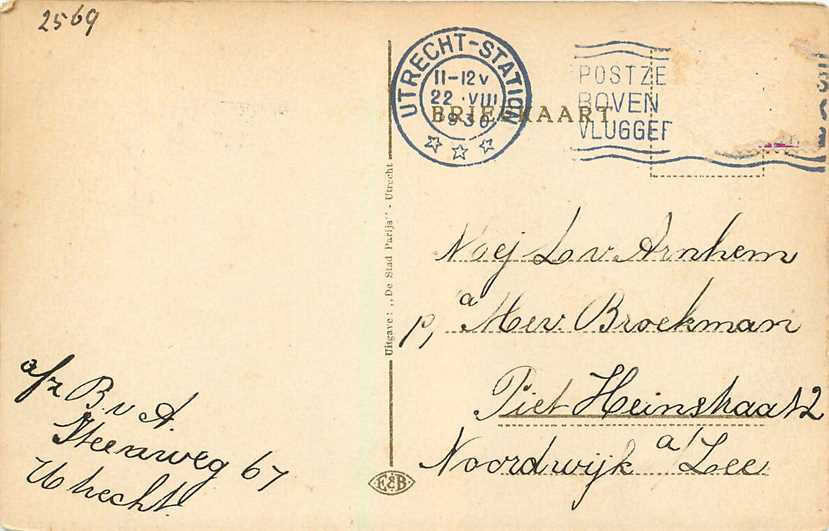 2569
UTRECHT-STATION
11-12V
22.VIII
1930
POSTZE
BOVEN
VLUGGER
BRIEFKAART
Uitgave: „De Stad Parijs" - Utrecht
Mej L v Arnhem
p/a Mev. Broekman
Piet Heinstraat 2
Noordwijk a/Zee
afz B. v A.
Steenweg 67
Utrecht.
E&B